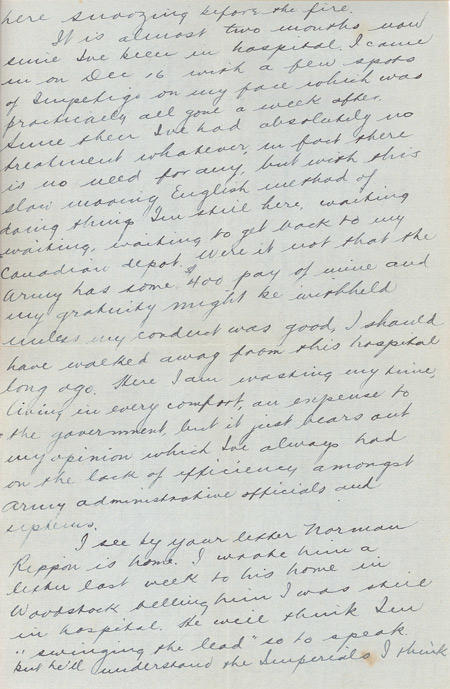 here snoozing before the fire.
It is almost two months now
since I've been in hospital. I came
in on Dec 16 with a few spots
of Impetigo on my face which was
practically all gone a week after.
Since then I've had absolutely no
treatment whatever, in fact there
is no need for any, but with this
slow moving English method of
doing things I'm still here, waiting
waiting, waiting to get back to my
Canadian depot. Were it not that the
Army has some $400 pay of mine and
my gratuity might be withheld
unless my conduct was good, I should
have walked away from this hospital
long ago. Here I am wasting my time,
living in every comfort, an expense to
the government, but it just bears out
my opinion which I've always had
on the lack of efficiency amongst
army administrative officials and
systems.
I see by your letter Norman
Rippon is home. I wrote him a
letter last week to his home in
Woodstock telling him I was still
in hospital. He will think I'm
"swinging the lead" so to speak.
but he'll understand the Imperials I think